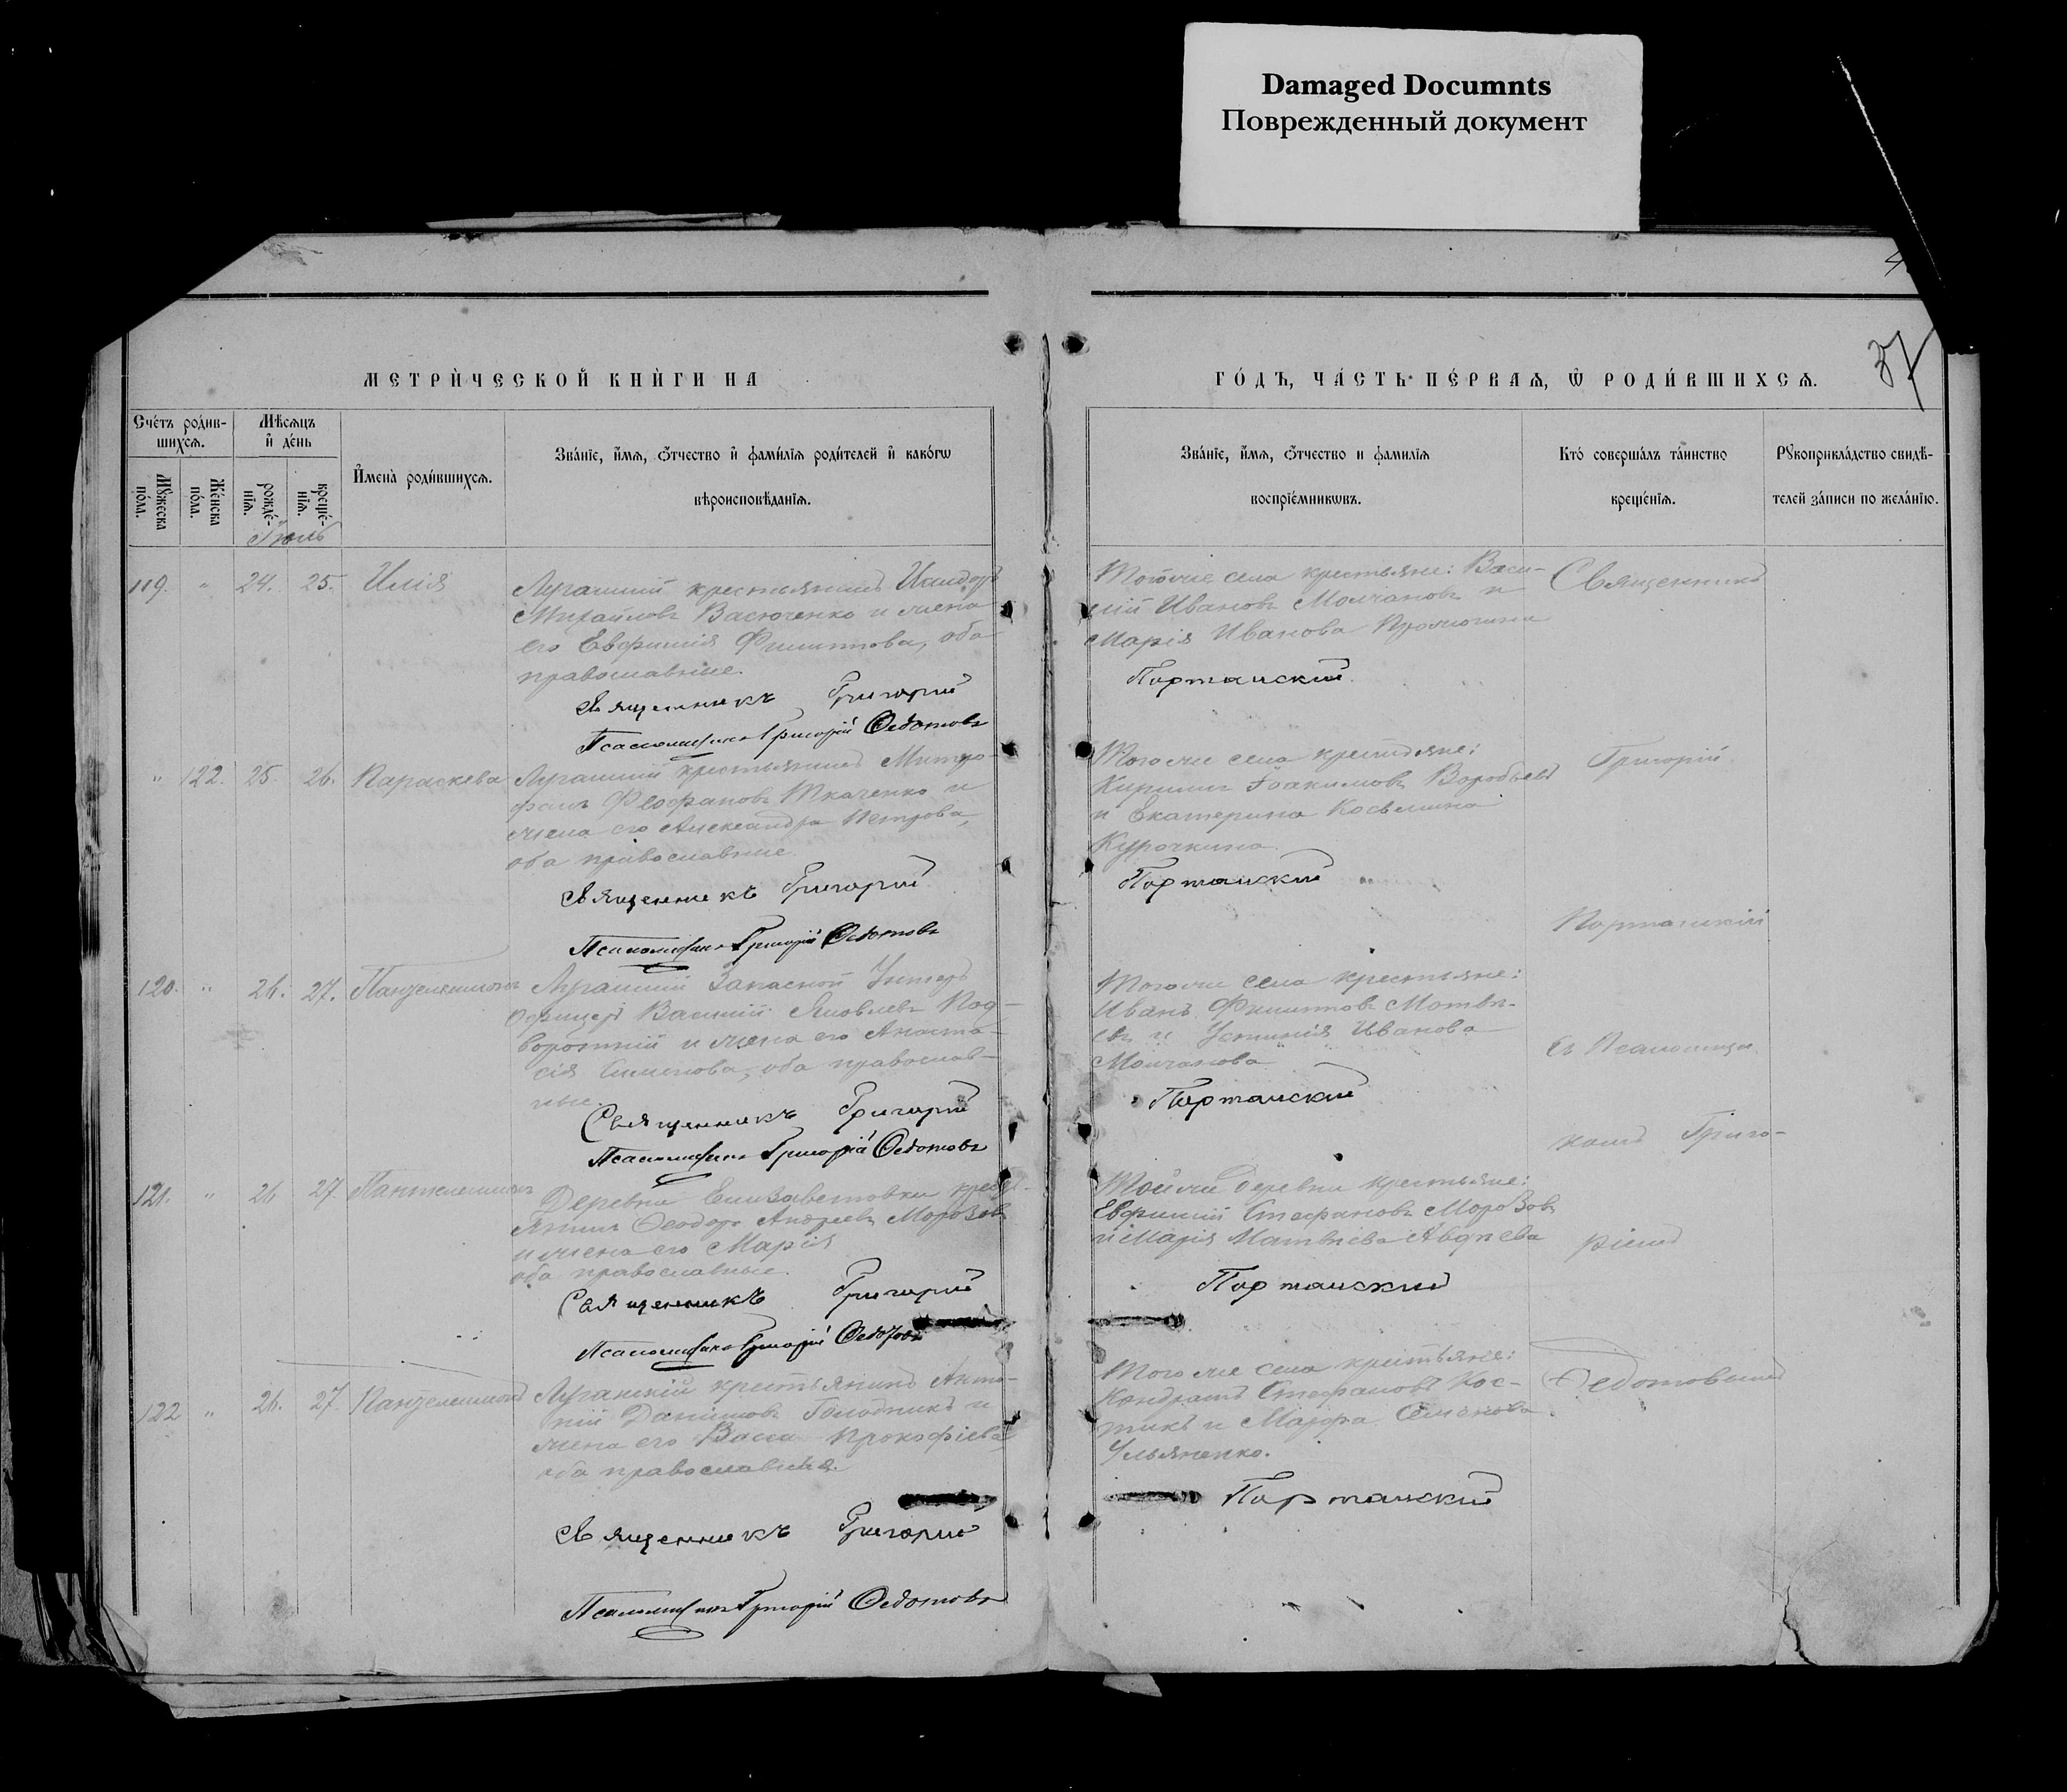 Damaged Documnts
Поврежденный документ
4
37
МЕТРИЧЕСКОЙ КНИГИ НА
ГОДЪ, ЧАСТЬ ПЕРВАЯ, Ѡ РОДИВШИХСЯ.
Счетъ родив-
шихся.
Мужеска пола.
Женска пола.
Мѣсяцъ и день
рожде-
нія.
креще-
нія.
Имена родившихся.
Званіе, имя, отчество и фамилія родителей и какогѡ
вѣроисповѣданія.
Званіе, имя, отчество и фамилія
воспріемникѡвъ.
Кто совершалъ таинство
крещенія.
Рукоприкладство свидѣ-
телей записи по желанію.
Іюль
119. " 24. 25. Илія
Луганскій крестьянинъ
Михайловъ Васюченко и жена
его Евфимія Филиппова, оба
православные.
Священникъ Григорий
Псаломщикъ Григорій Ѳедотовъ
Того же села крестьяне: Васи-
лій Ивановъ Молчановъ и
Марія Иванова
Порташский
Священникъ
" 122. 25. 26. Параскева
Луганскій крестьянинъ Митро-
фанъ Феофановъ Ткаченко и
жена его Александра Петрова,
оба православные.
Священникъ Григорий
Псаломщикъ Григорій Ѳедотовъ
Того же села крестьяне:
Кириллъ Іоакимовъ Воробьевъ
и Екатерина Косьмина
Курочкина.
Порташский
Григорій
Порташскій
120. " 26. 27. Пантелеимонъ
Луганскій Запасной Унтеръ
Офицеръ Василій Яковлевъ Под-
воротній и жена его Анаста-
сія Симеонова, оба православ-
ные.
Священникъ Григорий
Псаломщикъ Григорій Ѳедотовъ
Того же села крестьяне:
Иванъ Филипповъ Матвѣ-
евъ и Устинія Иванова
Молчанова
Порташский
съ Псаломщи-
комъ Григо-
121. " 26 27. Пантелеимонъ
Деревни Елизаветовки кресть-
янинъ Ѳеодоръ Андреевъ Морозовъ
и жена его Марія
оба православные.
Священникъ Григорий
Псаломщикъ Григорій Ѳедотовъ
Той же деревни крестьяне:
Евфимій Стефановъ Морозовъ
и Марія Матвѣева Авдѣева
Порташский
ріемъ
122 " 26. 27. Пантелеимонъ
Луганскій крестьянинъ Анто-
ній Даниловъ Голодникъ и
жена его Васса Прокофіева
оба православные.
Священникъ Григорий
Псаломщикъ Григорій Ѳедотовъ
Того же села крестьяне:
Кондратъ Стефановъ Кос-
тикъ и Марфа Семенова
Ульяненко.
Порташский
Ѳедотовымъ